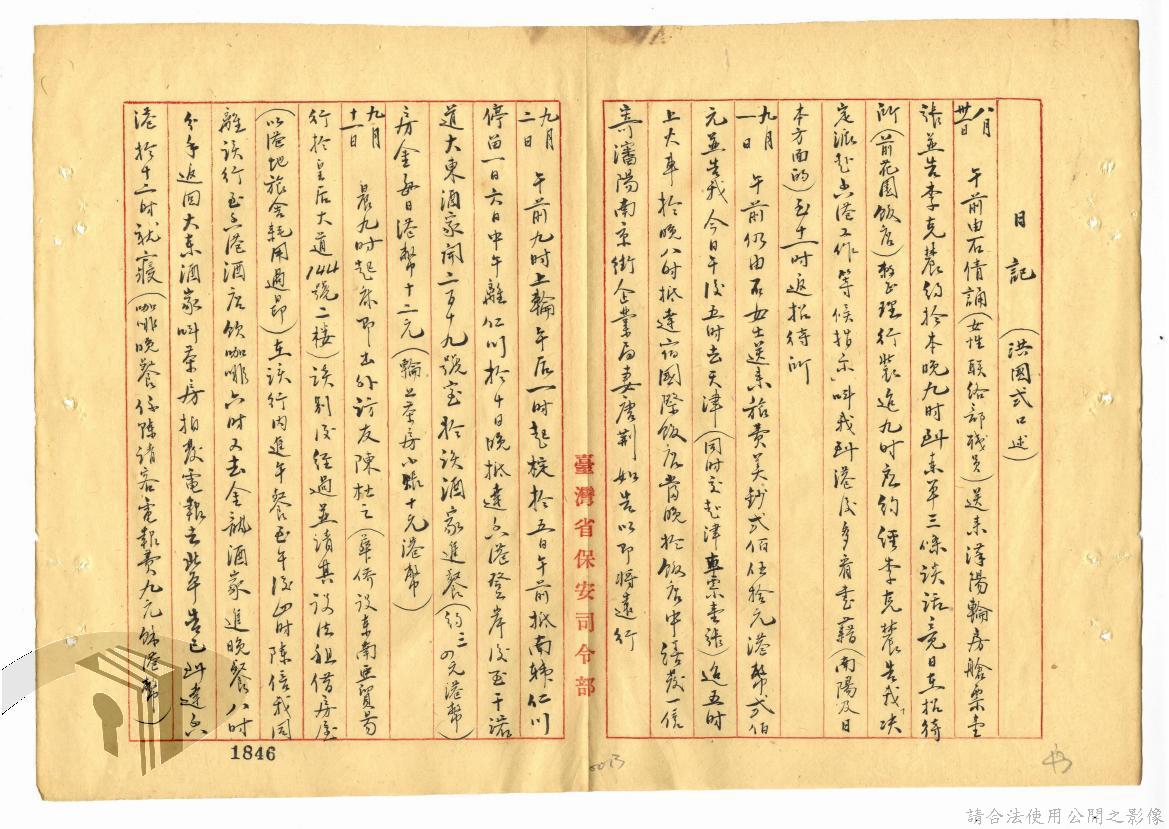 日記　（洪國式口述）
八月卅一日　午前由石倩誦（女性联络部職員）送来洋陽輪房艙票壹
張並告李克農约於本晚九时到东单三條谈话竟日在招待
所（前花園飯店）整理行装迨九时应约经李克農告我决
定派赴香港工作等候指示叫我到港后多看書籍（南陽及日
本方面的）至十一时返招待所
九月一日　午前仍由石女士送来旅费美钞弍佰伍拾元港幣弍佰
元並告我今日午后五时去天津（同时交赴津車票壹张）迨五时
上火車於晚八时抵達宿國際飯店當晚於飯店中繕發一信
寄瀋陽南京街企業局妻唐荆如告以即将遠行
九月二日　午前九时上輪午后一时起椗於五日午前抵南韩仁川
停留一日六日中午離仁川於十日晚抵達香港登岸后至干諾
道大東酒家開二百十九號室於该酒家進餐（约三四元港幣）
房金每日港幣十二元（輪上茶房小賬十元港幣）
九月十一日　晨九时起床即出外访友陳杜之（華侨设东南亞貿易
行於皇后大道144號二楼）谈别后经過並请其设法租借房屋
（以港地旅舍耗用過昂）在该行內進午餐至午后四时陳偕我同
離该行至香港酒店飲咖啡六时又去金龍酒家進晚餐八时
分手返回大東酒家叫茶房拍發電報去北平告已到達香
港於十二时就寢（咖啡晚餐係陳请客電報費九元餘港幣）
臺灣省保安司令部
1846
請合法使用公開之影像